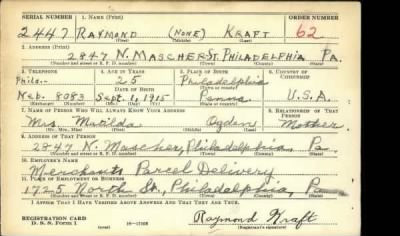 SERIAL NUMBER 1. NAME (Print) ORDER NUMBER
2447 RAYMOND (NONE) KRAFT 62
(First) (Middle) (Last)
2. ADDRESS (Print)
2847 N. MASCHER ST. PHILADELPHIA PA.
(Number and street or R. F. D. number) (Town) (County) (State)
3. TELEPHONE 4. AGE IN YEARS 5. PLACE OF BIRTH 6. COUNTRY OF CITIZENSHIP
Phila. 25 Philadelphia
DATE OF BIRTH
Neb. 8083 Sept. 1, 1915 Penna U.S.A.
(Exchange) (Number) (Mo.) (Day) (Yr.) (State or country)
7. NAME OF PERSON WHO WILL ALWAYS KNOW YOUR ADDRESS 8. RELATIONSHIP OF THAT PERSON
Mrs. Matilda Ogden Mother
(Mr., Mrs., Miss) (First) (Middle) (Last)
9. ADDRESS OF THAT PERSON
2847 N. Mascher, Philadelphia, Pa
(Number and street or R. F. D. number) (Town) (County) (State)
10. EMPLOYER'S NAME
Merchants Parcel Delivery
11. PLACE OF EMPLOYMENT OR BUSINESS
1725 North St., Philadelphia, Pa
(Number and street or R. F. D. number) (Town) (County) (State)
I AFFIRM THAT I HAVE VERIFIED ABOVE ANSWERS AND THAT THEY ARE TRUE.
REGISTRATION CARD
D. S. S. Form 1 Raymond Kraft
(over) (Registrant's signature)